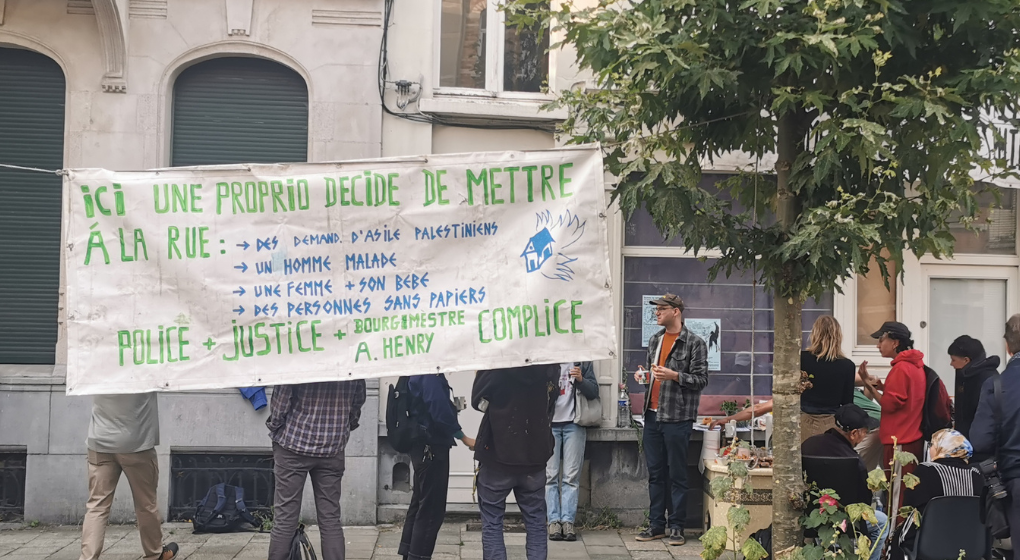 ICI UNE PROPRIO DECIDE DE METTRE
Á LA RUE :
→ DES DEMAND. D'ASILE PALESTINIENS
→ UN HOMME MALADE
→ UNE FEMME + SON BEBE
→ DES PERSONNES SANS PAPIERS
POLICE + JUSTICE + BOURGMESTRE A. HENRY COMPLICE